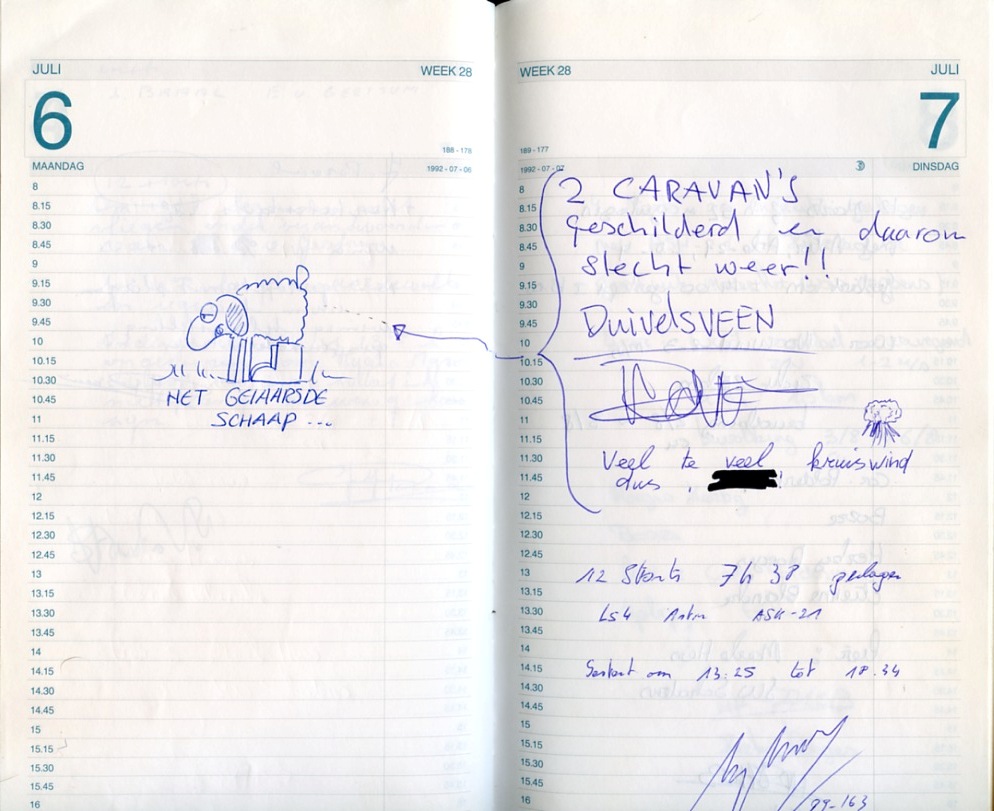 JULI WEEK 28
6
188 - 178
MAANDAG 1992 - 07 - 06
8
8.15
8.30
8.45
9
9.15
9.30
9.45
10
10.15
10.30
10.45
11
11.15
11.30
11.45
12
12.15
12.30
12.45
13
13.15
13.30
13.45
14
14.15
14.30
14.45
15
15.15
15.30
15.45
16
HET GEIAARSDE
SCHAAP ...
WEEK 28 JULI
7
189 - 177
1992 - 07 - 07 DINSDAG
8
8.15
8.30
8.45
9
9.15
9.30
9.45
10
10.15
10.30
10.45
11
11.15
11.30
11.45
12
12.15
12.30
12.45
13
13.15
13.30
13.45
14
14.15
14.30
14.45
15
15.15
15.30
15.45
16
2 CARAVAN'S
geschilderd en daarom
slecht weer!!
DuivelsVEEN
Veel te veel kruiswind
dus
12 Starts 7h 38 gevlogen
LS4 Astir ASK-21
Gestart om 13:25 tot 18.34
89-163